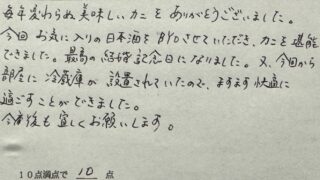 毎年変わらぬ美味しいカニをありがとうございました。
今回お気に入りの日本酒をBYOさせていただき、カニを堪能
できました。最高の結婚記念日になりました。又、今回から
部屋に冷蔵庫が設置されていたので、ますます快適に
過ごすことができました。
今後も宜しくお願いします。
10点満点で 10 点